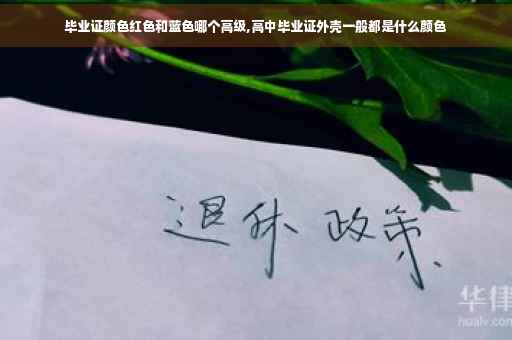 毕业证颜色红色和蓝色哪个高级,高中毕业证外壳一般都是什么颜色
退休 政策
华律
hualv.com